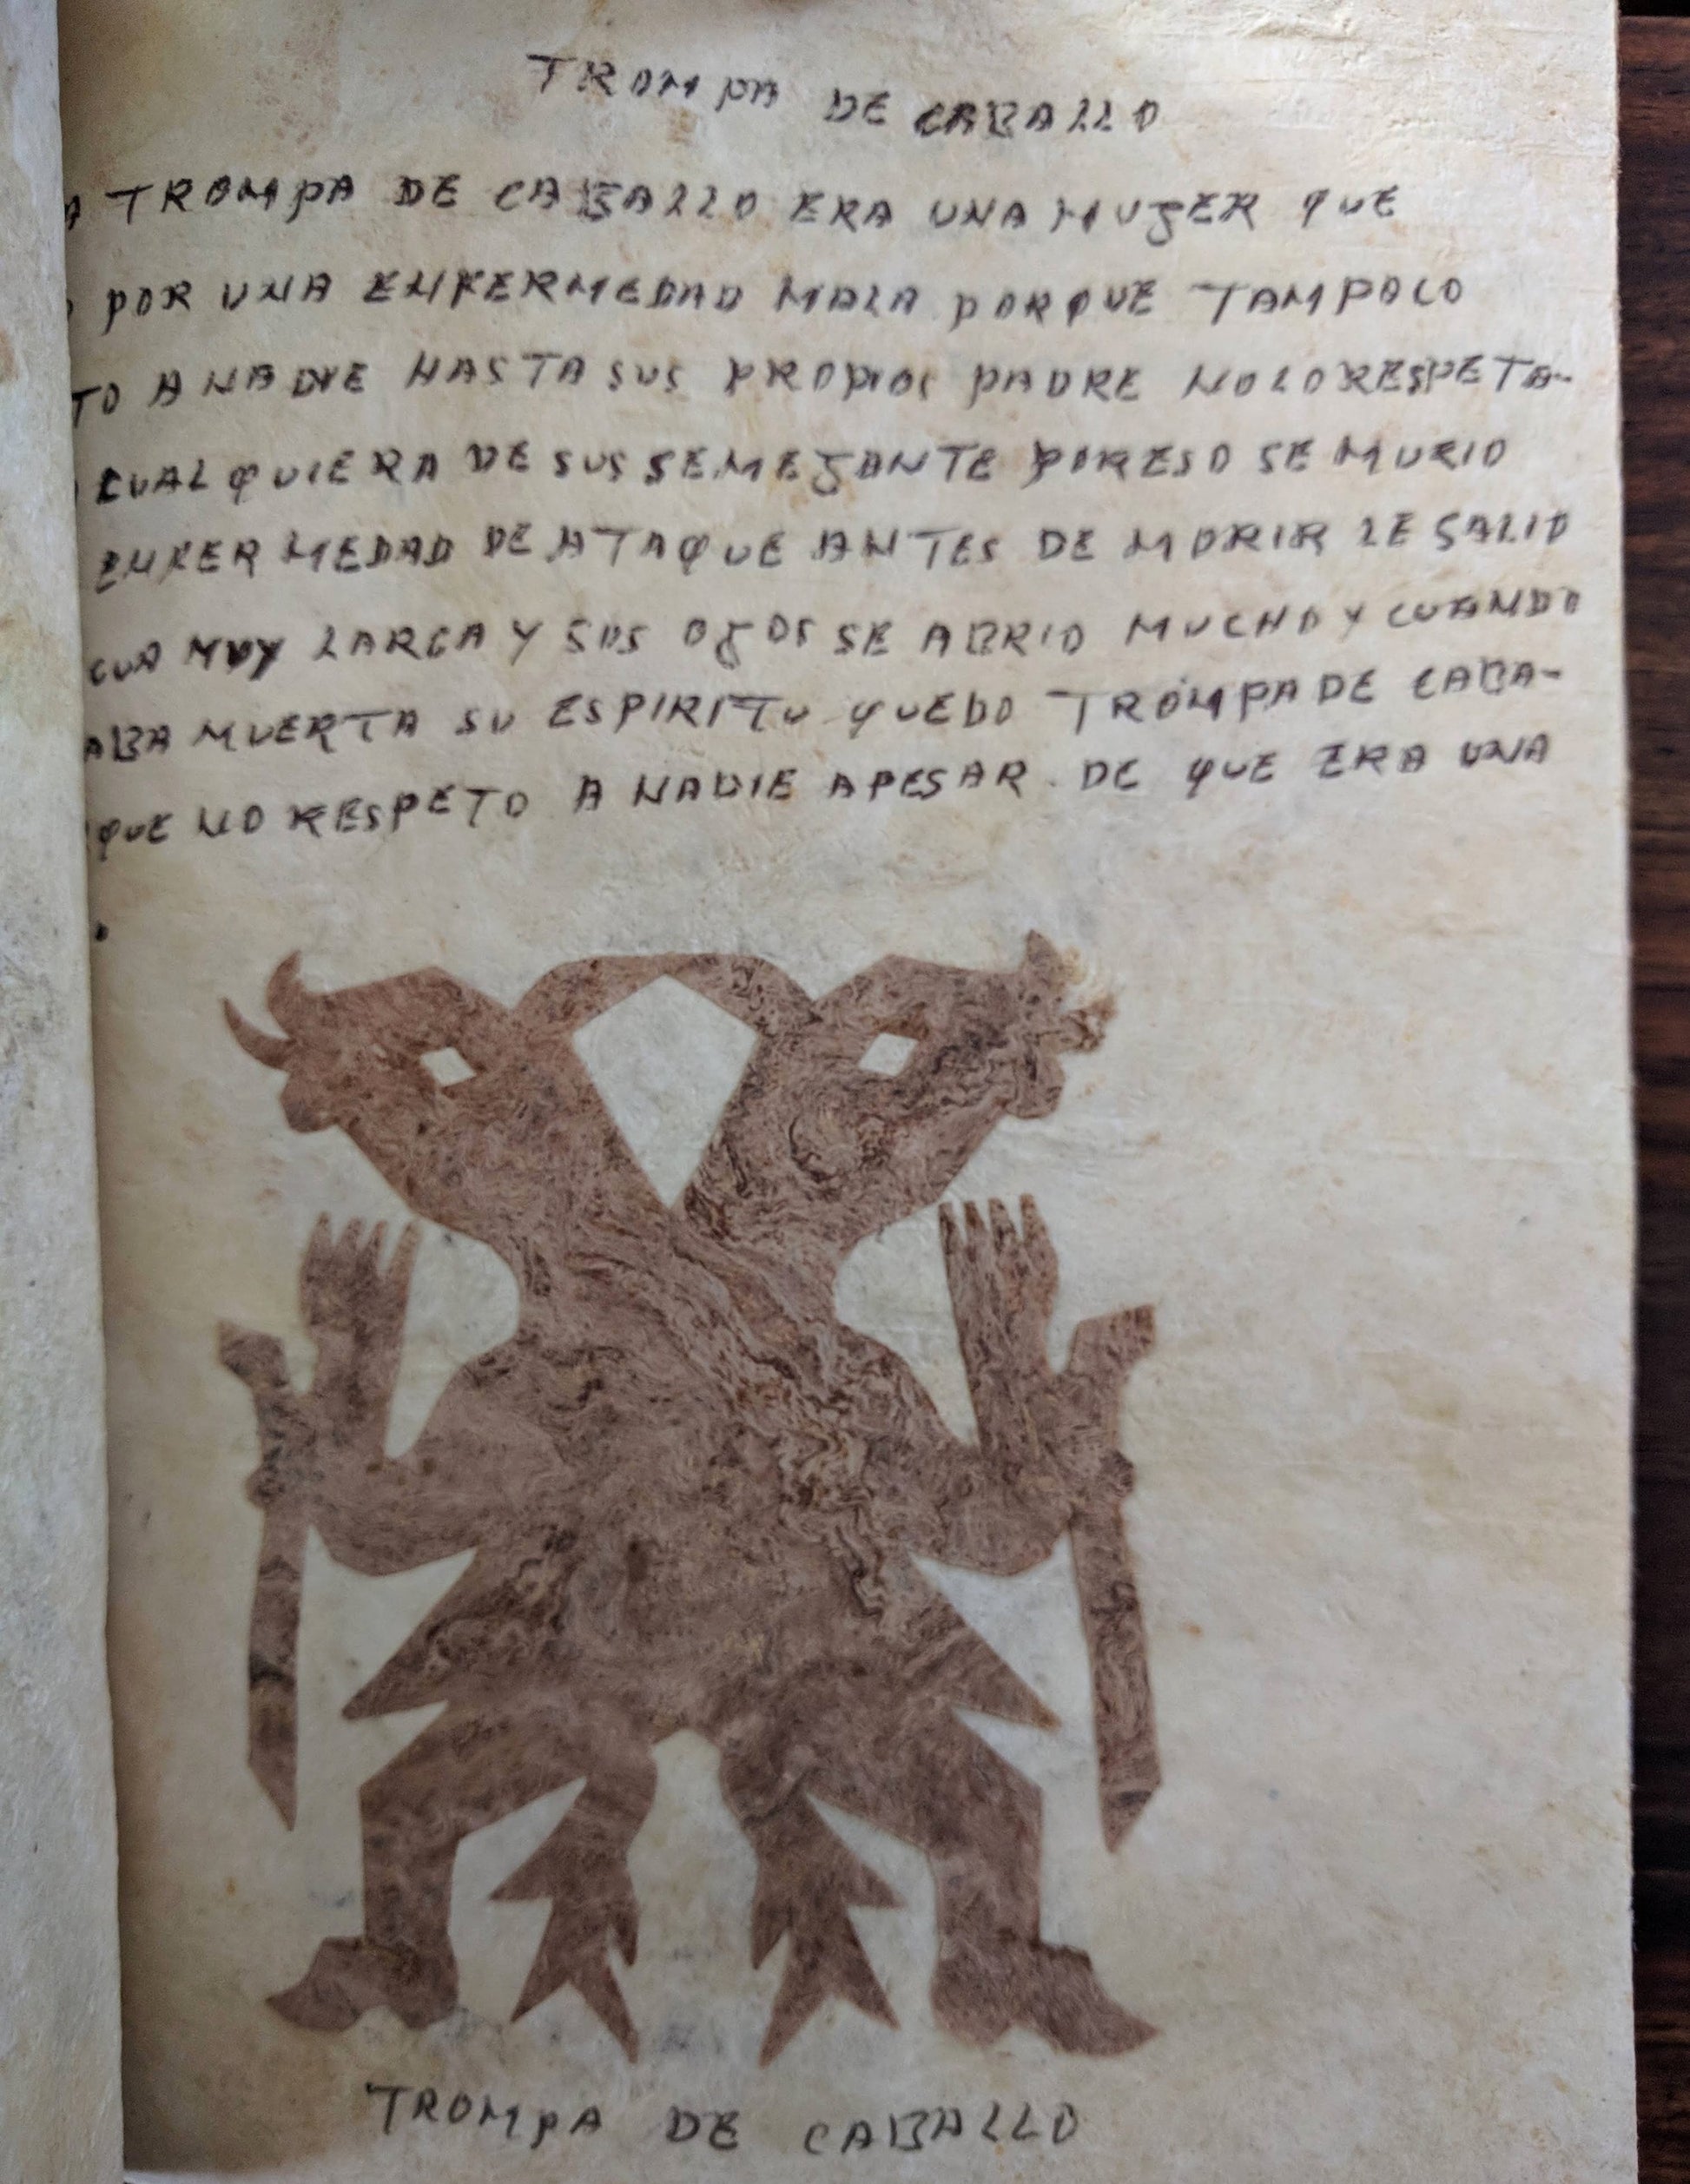 TROMPA DE CABALLO
A TROMPA DE CABALLO ERA UNA MUJER QUE
POR UNA ENFERMEDAD MALA PORQUE TAMPOCO
TO A NADIE HASTA SUS PROPIOS PADRE NOLORESPETA-
CUALQUIERA DE SUS SEMEJANTE PORESO SE MURIO
ENFERMEDAD DE ATAQUE ANTES DE MORIR LE SALIO
GUA MUY LARGA Y SUS OJOS SE ABRIO MUCHO Y CUANDO
ABA MUERTA SU ESPIRITU QUEDO TROMPA DE CABA-
QUE NO RESPETO A NADIE APESAR DE QUE ERA UNA
TROMPA DE CABALLO